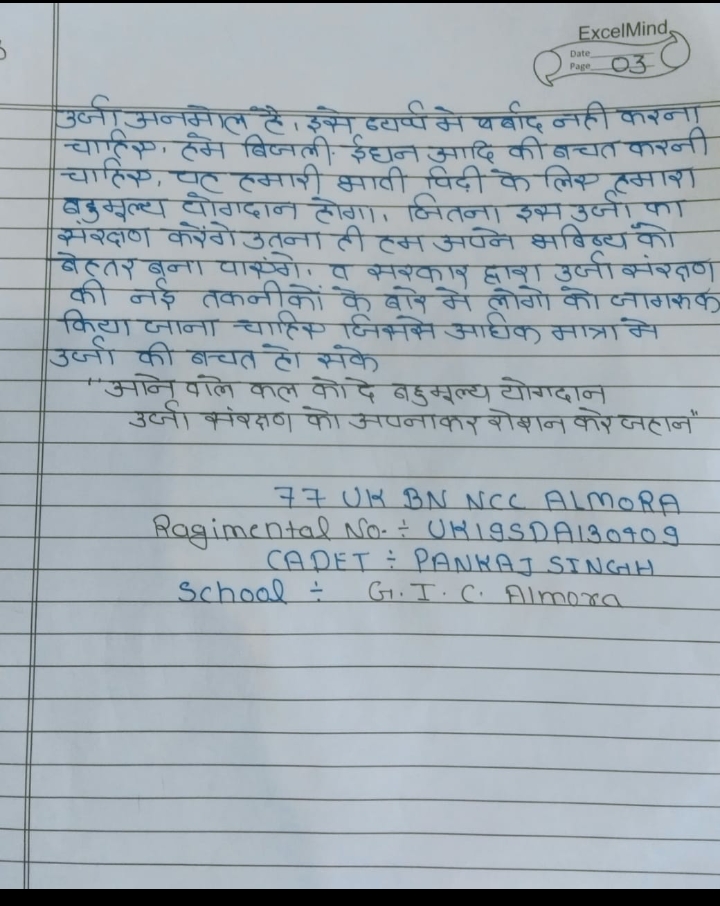 ExcelMind
Date
Page 03
उर्जा अनमोल है, इसे व्यर्थ मे बर्बाद नही करना
चाहिए, हमे बिजली, ईधन आदि की बचत करनी
चाहिए, यह हमारी भावी पिढी के लिए हमारा
बहुमूल्य योगदान होगा, जितना हम उर्जा का
संरक्षण करेंगे उतना ही हम अपने भबिष्य को
बेहतर बना पाएंगे, व सरकार द्वारा उर्जा संरक्षण
की नई तकनीकों के बारे मे लोगो को जागरुक
किया जाना चाहिए जिससे अधिक मात्रा मे
उर्जा की बचत हो सके
"आने वाले कल को दे बहुमूल्य योगदान
उर्जा संरक्षण को अपनाकर रोशन करे जहान"
77 UK BN NCC ALMORA
Ragimental No. ÷ UK19SDA130409
CADET ÷ PANKAJ SINGH
School ÷ G.I.C. Almora